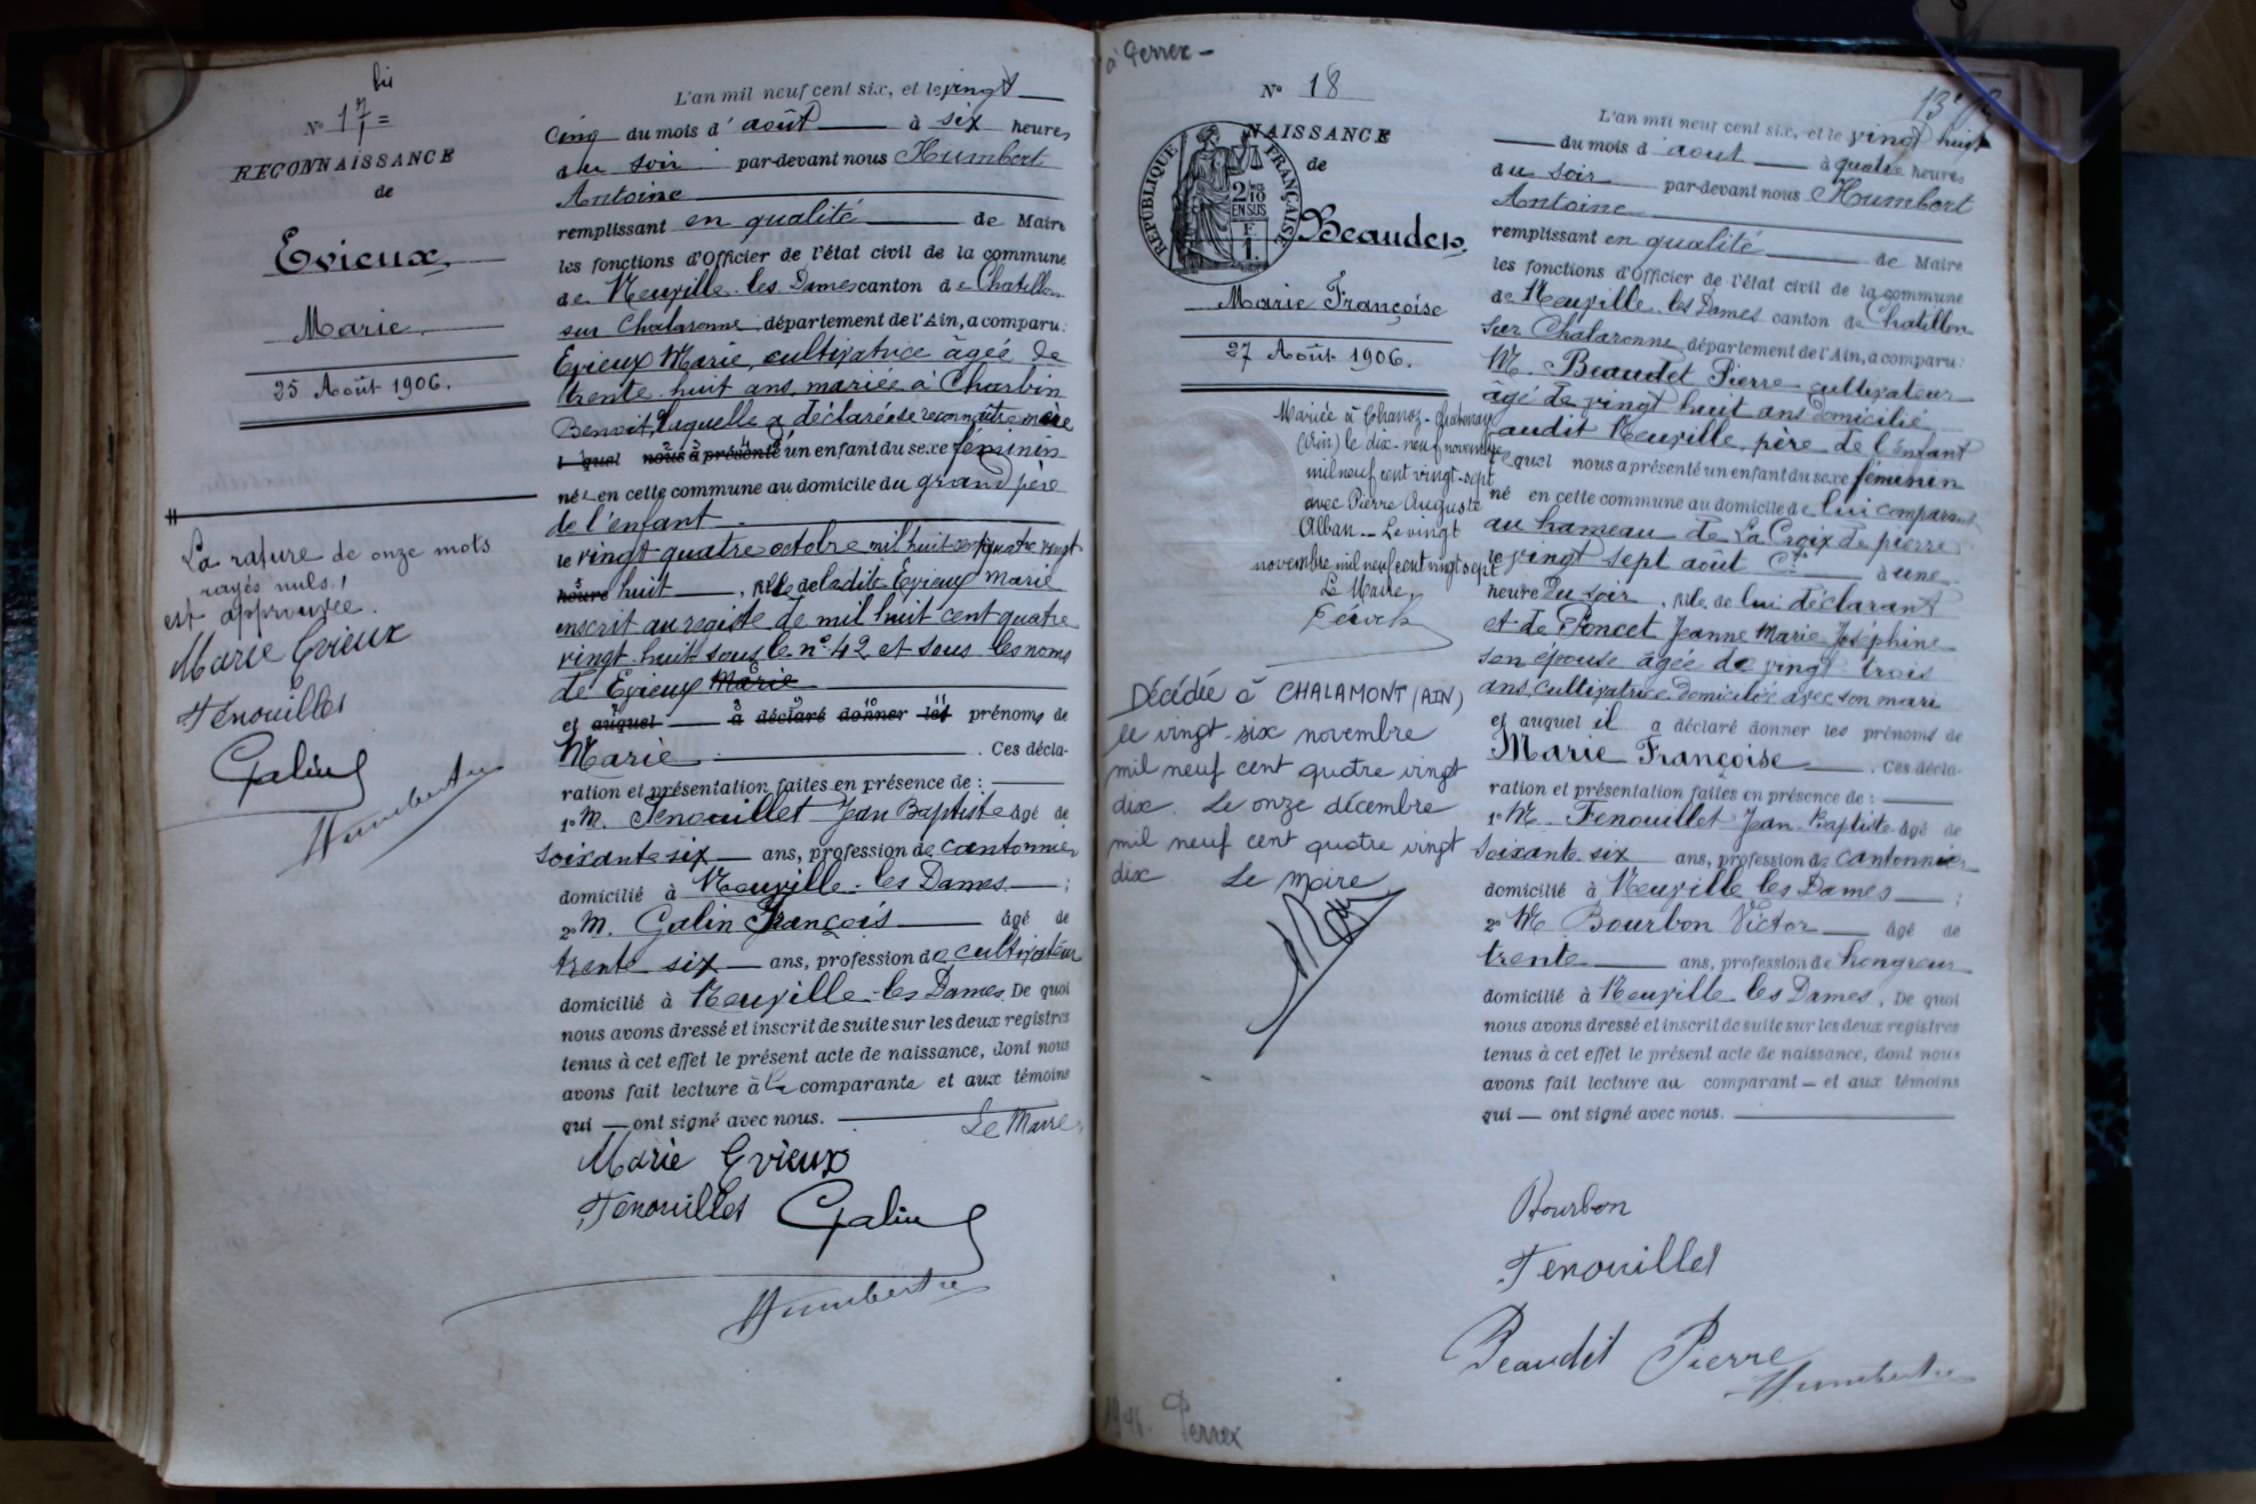 bis
N° 17 =
RECONNAISSANCE
de
Evieux
Marie
25 Août 1906.
La rature de onze mots
rayés nuls,
est approuvée.
Marie Evieux
Fenouillet
Galin
Humbert
L'an mil neuf cent six, et le vingt
cinq du mois d'août à six heures
du soir par-devant nous Humbert
Antoine
remplissant en qualité de Maire
les fonctions d'Officier de l'état civil de la commune
de Neuville les Dames canton de Chatillon
sur Chalaronne, département de l'Ain, a comparu:
Evieux Marie, cultivatrice âgée de
trente huit ans, mariée à Charbin
Benoit, laquelle a déclaré se reconnaître mère
l quel nous a présenté un enfant du sexe féminin
née en cette commune au domicile du grand père
de l'enfant
le vingt quatre octobre mil huit cent quatre vingt
heure huit, fille de ladite Evieux Marie
inscrit au registre de mil huit cent quatre
vingt huit sous le n° 42 et sous les noms
de Evieux Marie
et auquel a déclaré donner les prénoms de
Marie. Ces décla-
ration et présentation faites en présence de :
1° M. Fenouillet Jean Baptiste âgé de
soixante six ans, profession de cantonnier
domicilié à Neuville les Dames ;
2° M. Galin François âgé de
trente six ans, profession de cultivateur
domicilié à Neuville-les Dames. De quoi
nous avons dressé et inscrit de suite sur les deux registres
tenus à cet effet le présent acte de naissance, dont nous
avons fait lecture à la comparante et aux témoins
qui ont signé avec nous.
Le Maire,
Marie Evieux
Fenouillet Galin
Humbert
à Perrex -
N° 18
NAISSANCE
de
RÉPUBLIQUE FRANÇAISE
2/10
EN SUS
F.
1.
Beaudet
Marie Françoise
27 Août 1906.
Mariée à Chanoz-Chatenay
(Ain) le dix-neuf novembre
mil neuf cent vingt-sept
avec Pierre Auguste
Alban - Le vingt
novembre mil neuf cent vingt sept
Le Maire,
Décédée à CHALAMONT (AIN)
le vingt-six novembre
mil neuf cent quatre vingt
dix. Le onze décembre
mil neuf cent quatre vingt
dix Le Maire
Perrex
L'an mil neuf cent six, et le vingt huit
du mois d'août à quatre heures
du soir par-devant nous Humbert
Antoine
remplissant en qualité de Maire
les fonctions d'Officier de l'état civil de la commune
de Neuville les Dames canton de Chatillon
sur Chalaronne, département de l'Ain, a comparu:
M. Beaudet Pierre cultivateur
âgé de vingt huit ans domicilié
audit Neuville, père de l'enfant
lequel nous a présenté un enfant du sexe féminin
né en cette commune au domicile de lui comparant
au hameau de La Croix de pierre
le vingt sept août Ct à une
heure du soir, fille de lui déclarant
et de Poncet Jeanne Marie Joséphine
son épouse âgée de vingt trois
ans, cultivatrice domiciliée avec son mari
et auquel il a déclaré donner les prénoms de
Marie Françoise. Ces décla-
ration et présentation faites en présence de :
1° M. Fenouillet Jean-Baptiste âgé de
soixante six ans, profession de cantonnier
domicilié à Neuville les Dames ;
2° M Bourbon Victor âgé de
trente ans, profession de hongreur
domicilié à Neuville les Dames. De quoi
nous avons dressé et inscrit de suite sur les deux registres
tenus à cet effet le présent acte de naissance, dont nous
avons fait lecture au comparant et aux témoins
qui ont signé avec nous.
Bourbon
Fenouillet
Beaudet Pierre
Humbert